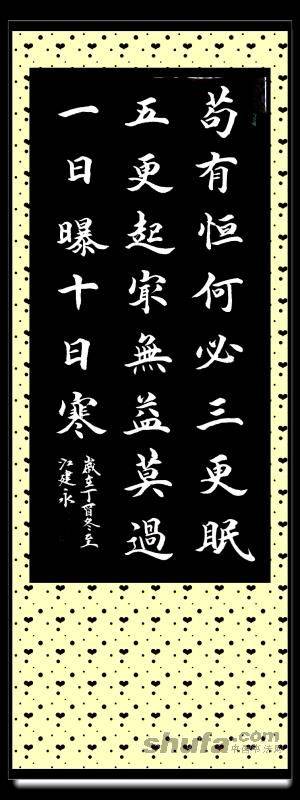 苟有恒何必三更眠
五更起寂無益莫過
一日曝十日寒
歲在丁酉冬至
江建永
shufa.com
中国书法网